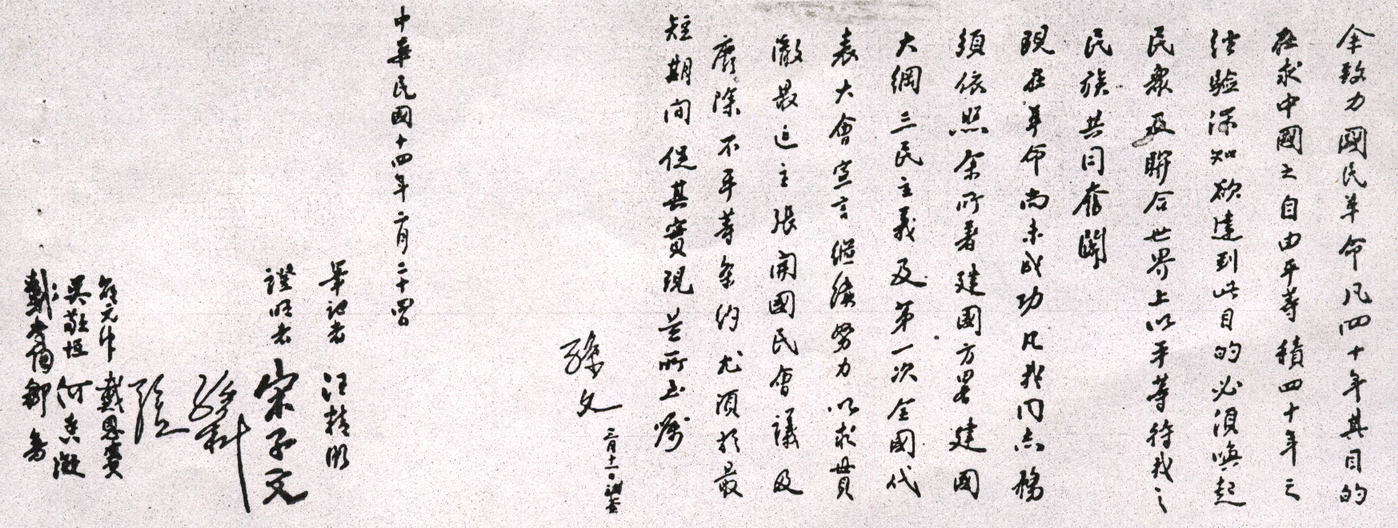 余致力國民革命凡四十年其目的
在求中國之自由平等積四十年之
經驗深知欲達到此目的必須喚起
民衆及聯合世界上以平等待我之
民族共同奮鬬
現在革命尚未成功凡我同志務
須依照余所著建國方畧建國
大綱三民主義及第一次全國代
表大會宣言繼續努力以求貫
澈最近主張開國民會議及
廢除不平等条約尤須於最
短期間促其實現是所至囑
孫文 三月十一日補簽
中華民國十四年二月二十四日
筆記者 汪精衛
證明者 宋子文
孫科
孔
戴恩賽
吳敬恒 何香凝
鄒魯